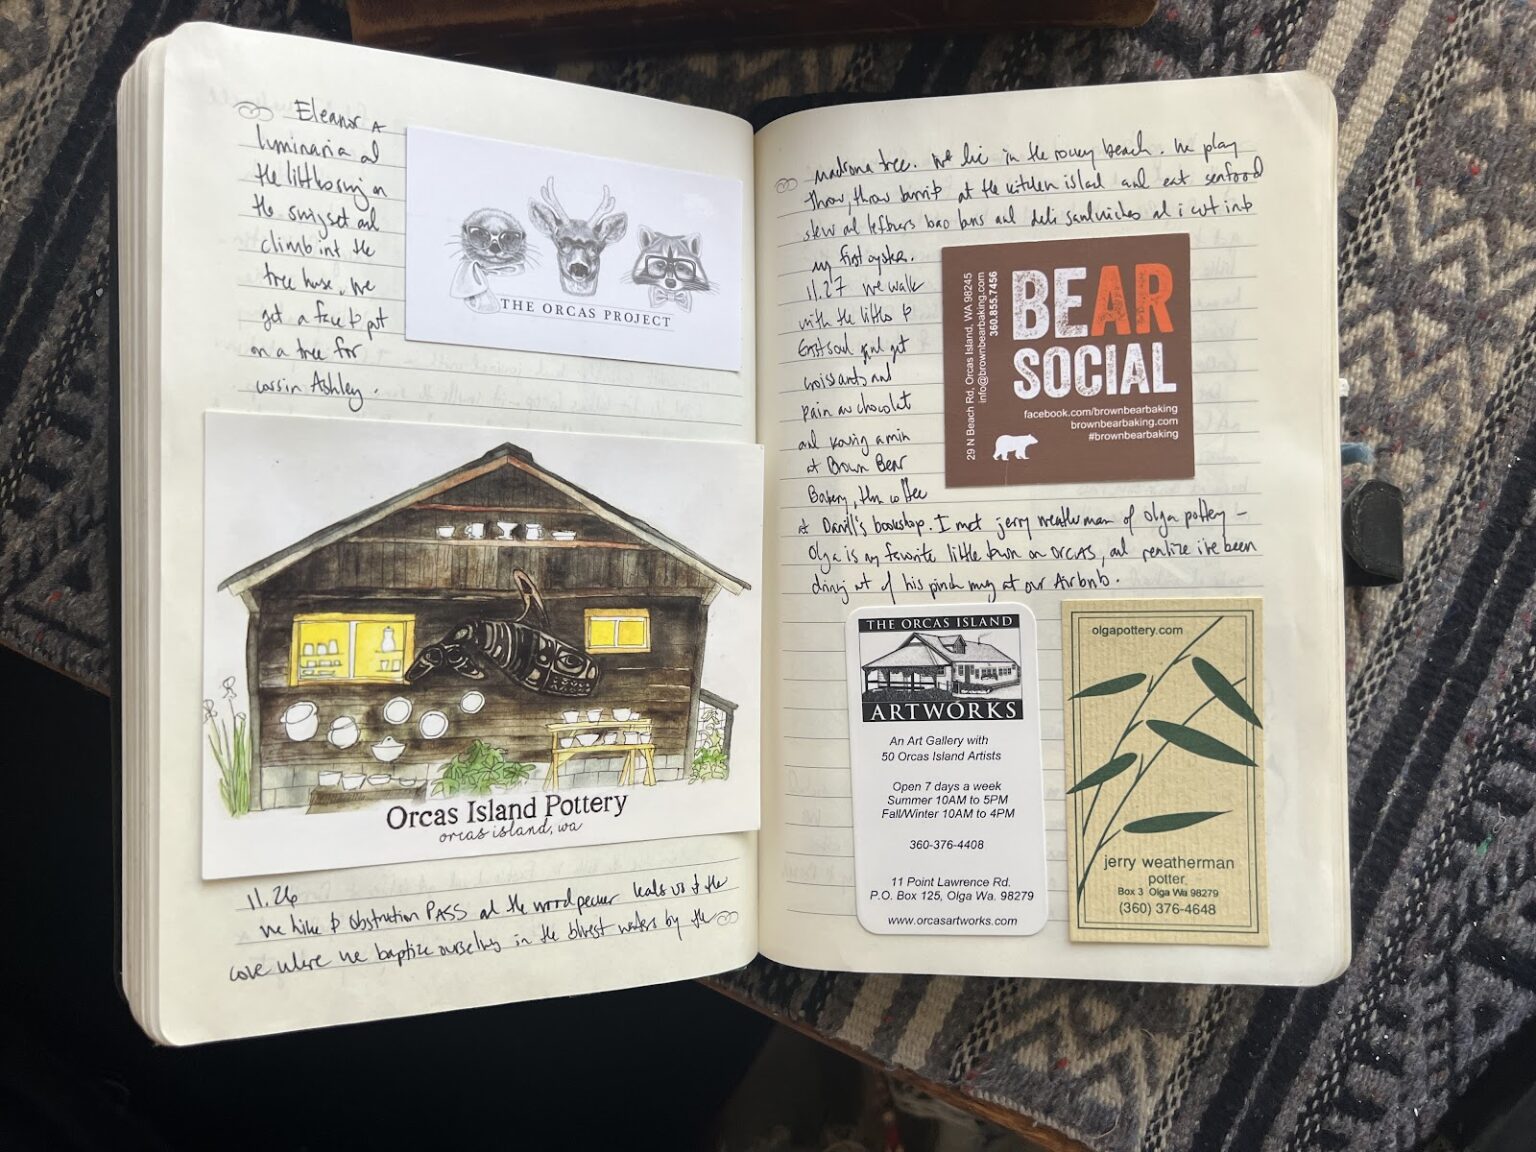 Eleanor A
luminaria and
the littles swing on
the swingset and
climb into the
tree house. We
get a face to put
on a tree for
cousin Ashley.
THE ORCAS PROJECT
Orcas Island Pottery
orcas island, wa
11.26
we hike to Obstruction PASS and the woodpecker leads us to the
cove where we baptize ourselves in the bluest waters by the
madrona tree. We lie in the rocky beach. We play
throw, throw burrito at the kitchen island and eat seafood
stew and leftovers bao buns and deli sandwiches and i cut into
my first oyster.
11.27 we walk
with the littles to
Eastsound and get
croissants and
pain au chocolat
and
at Brown Bear
Bakery, then coffee
at Darvill's bookshop. I met jerry weatherman of olga pottery –
Olga is my favorite little town on ORCAS, and realize i've been
drinking out of his pinch mug at our Airbnb.
BEAR
SOCIAL
facebook.com/brownbearbaking
brownbearbaking.com
#brownbearbaking
29 N Beach Rd, Orcas Island, WA 98245
info@brownbearbaking.com
360.855.7456
THE ORCAS ISLAND
ARTWORKS
An Art Gallery with
50 Orcas Island Artists
Open 7 days a week
Summer 10AM to 5PM
Fall/Winter 10AM to 4PM
360-376-4408
11 Point Lawrence Rd.
P.O. Box 125, Olga Wa. 98279
www.orcasartworks.com
olgapottery.com
jerry weatherman
potter
Box 3 Olga Wa 98279
(360) 376-4648